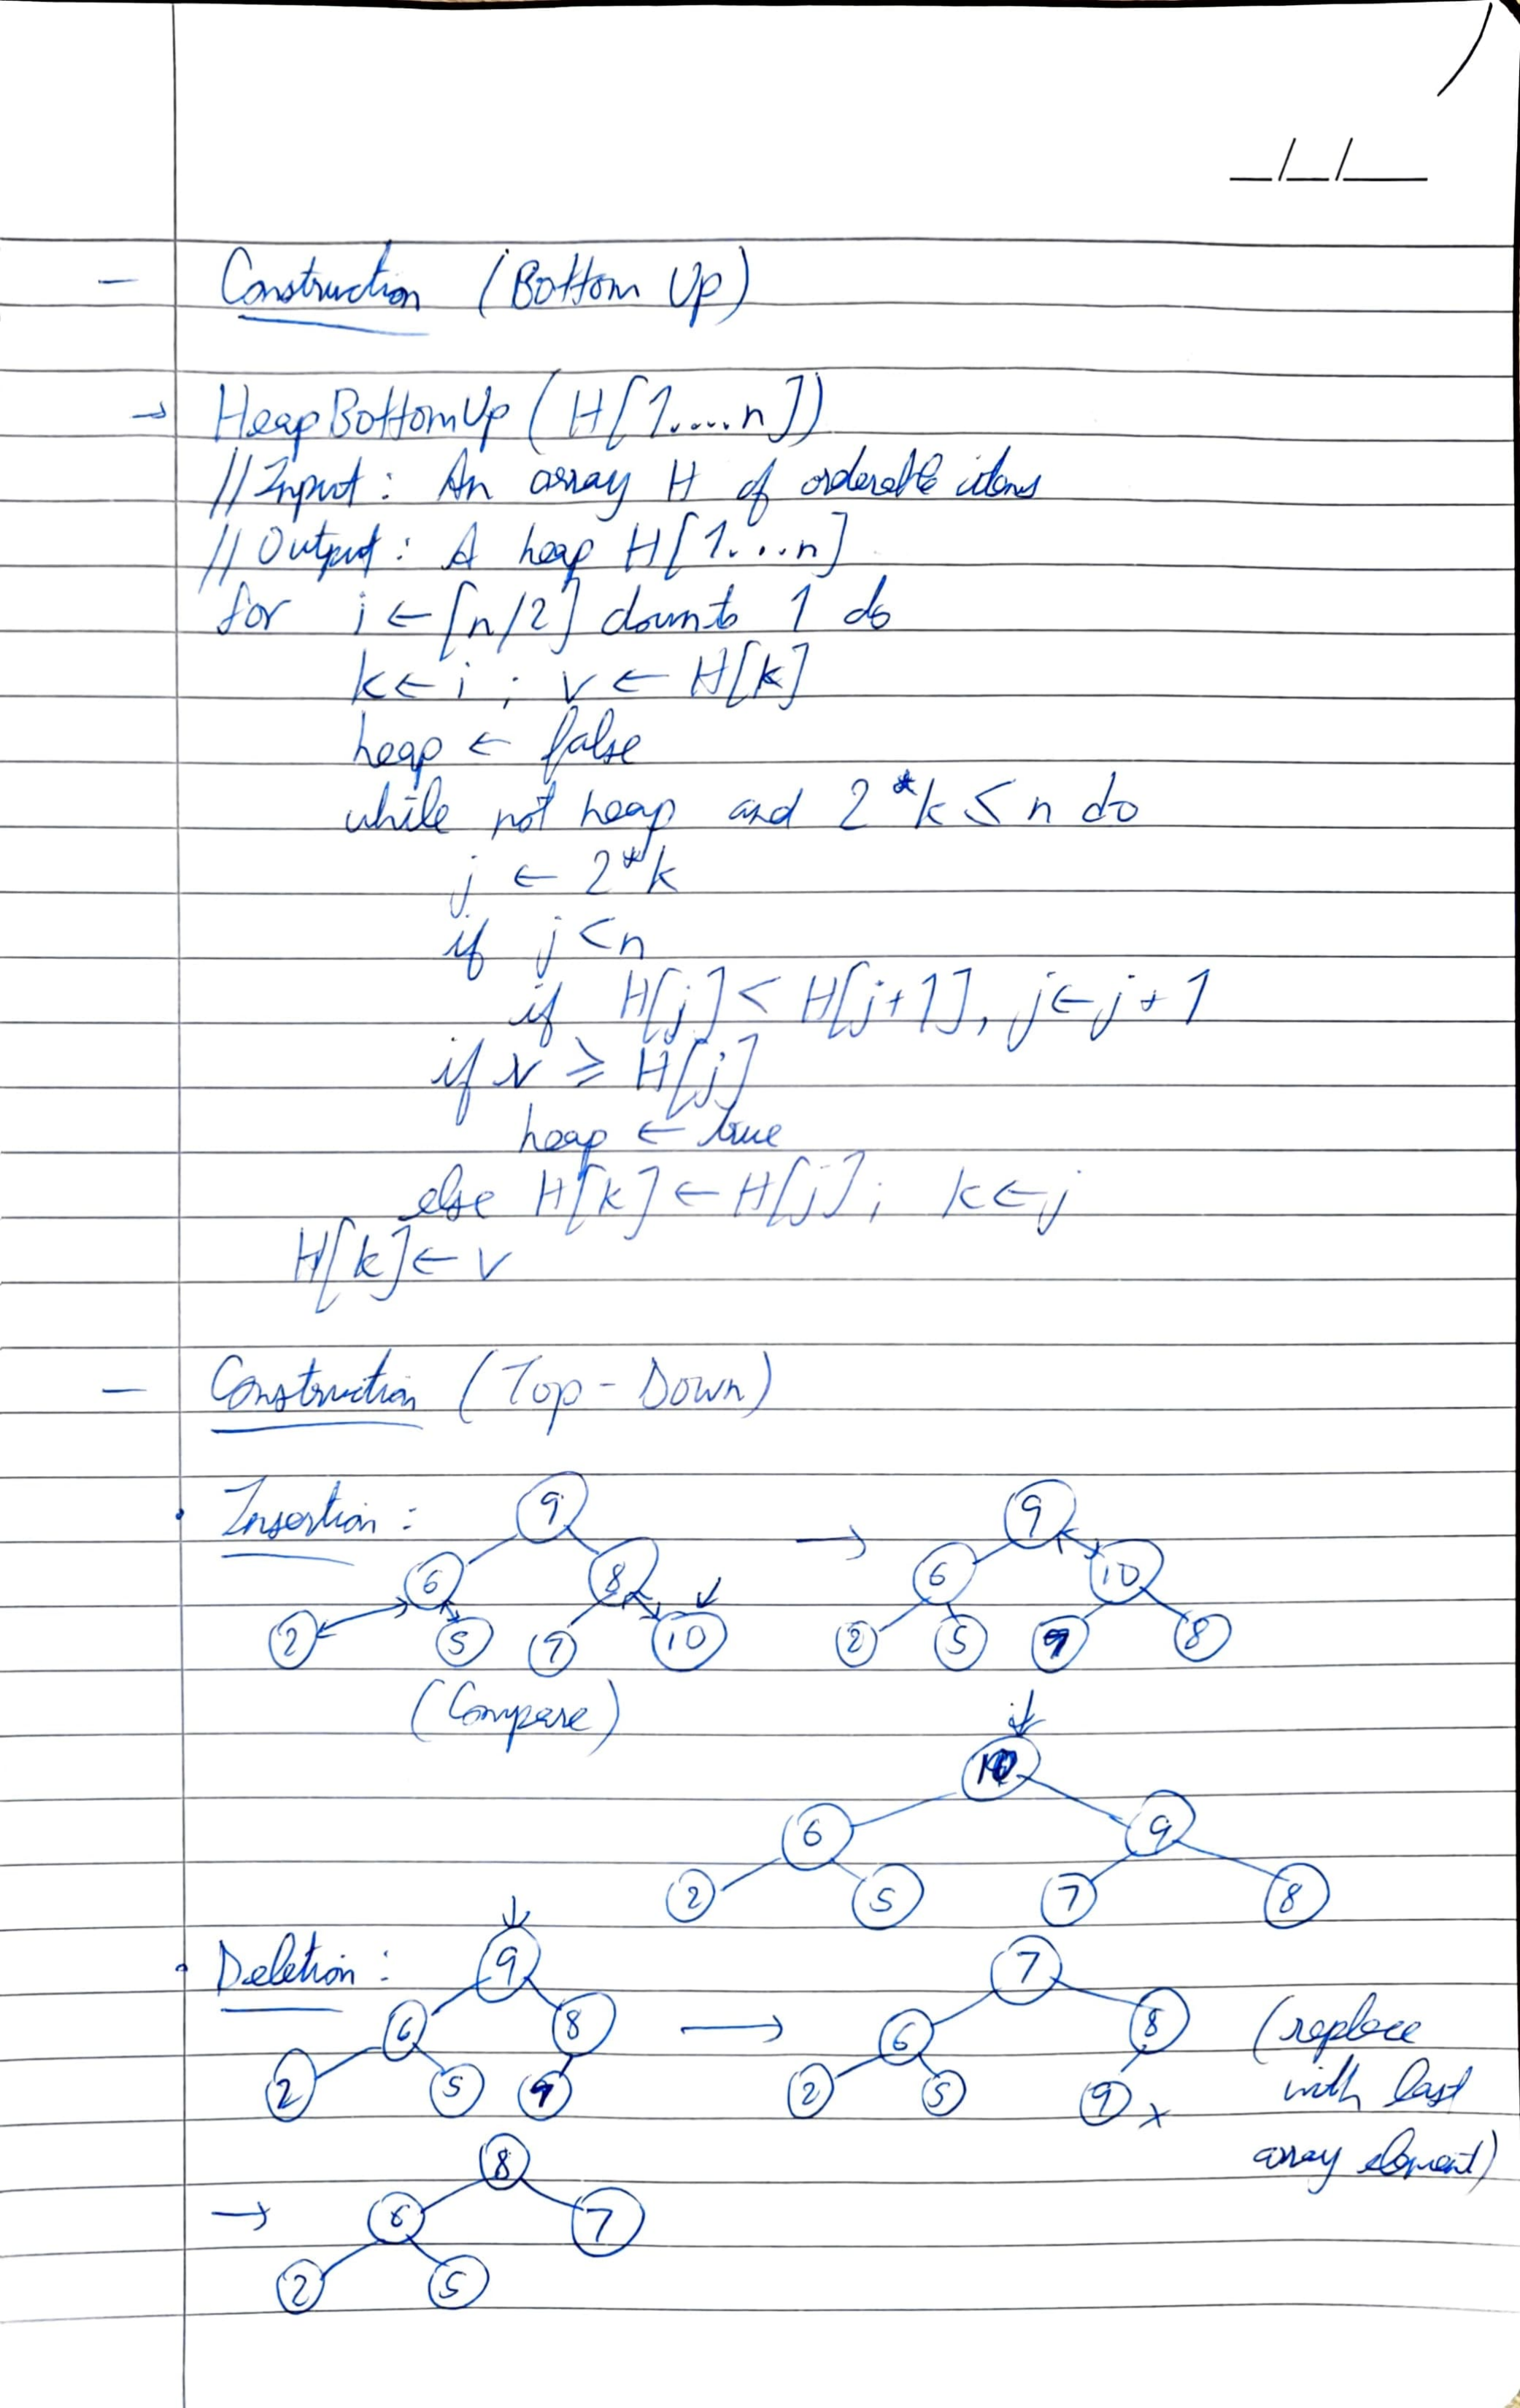 _/_/__
- Construction (Bottom Up)
→ HeapBottomUp (H[1....n])
//Input: An array H of orderable items
//Output: A heap H[1...n]
for i ← [n/2] downto 1 do
k ← i ; v ← H[k]
heap ← false
while not heap and 2*k ≤ n do
j ← 2*k
if j < n
if H[j] < H[j+1], j ← j + 1
if v ≥ H[j]
heap ← true
else H[k] ← H[j]; k ← j
H[k] ← v
- Construction (Top-Down)
• Insertion: 9 → 9
6 8 6 10
2 5 7 10 2 5 7 8
(Compare)
10
6 9
2 5 7 8
• Deletion: 9 → 7
6 8 6 8 (replace
2 5 7 2 5 9 x with last
array element)
→ 8
6 7
2 5